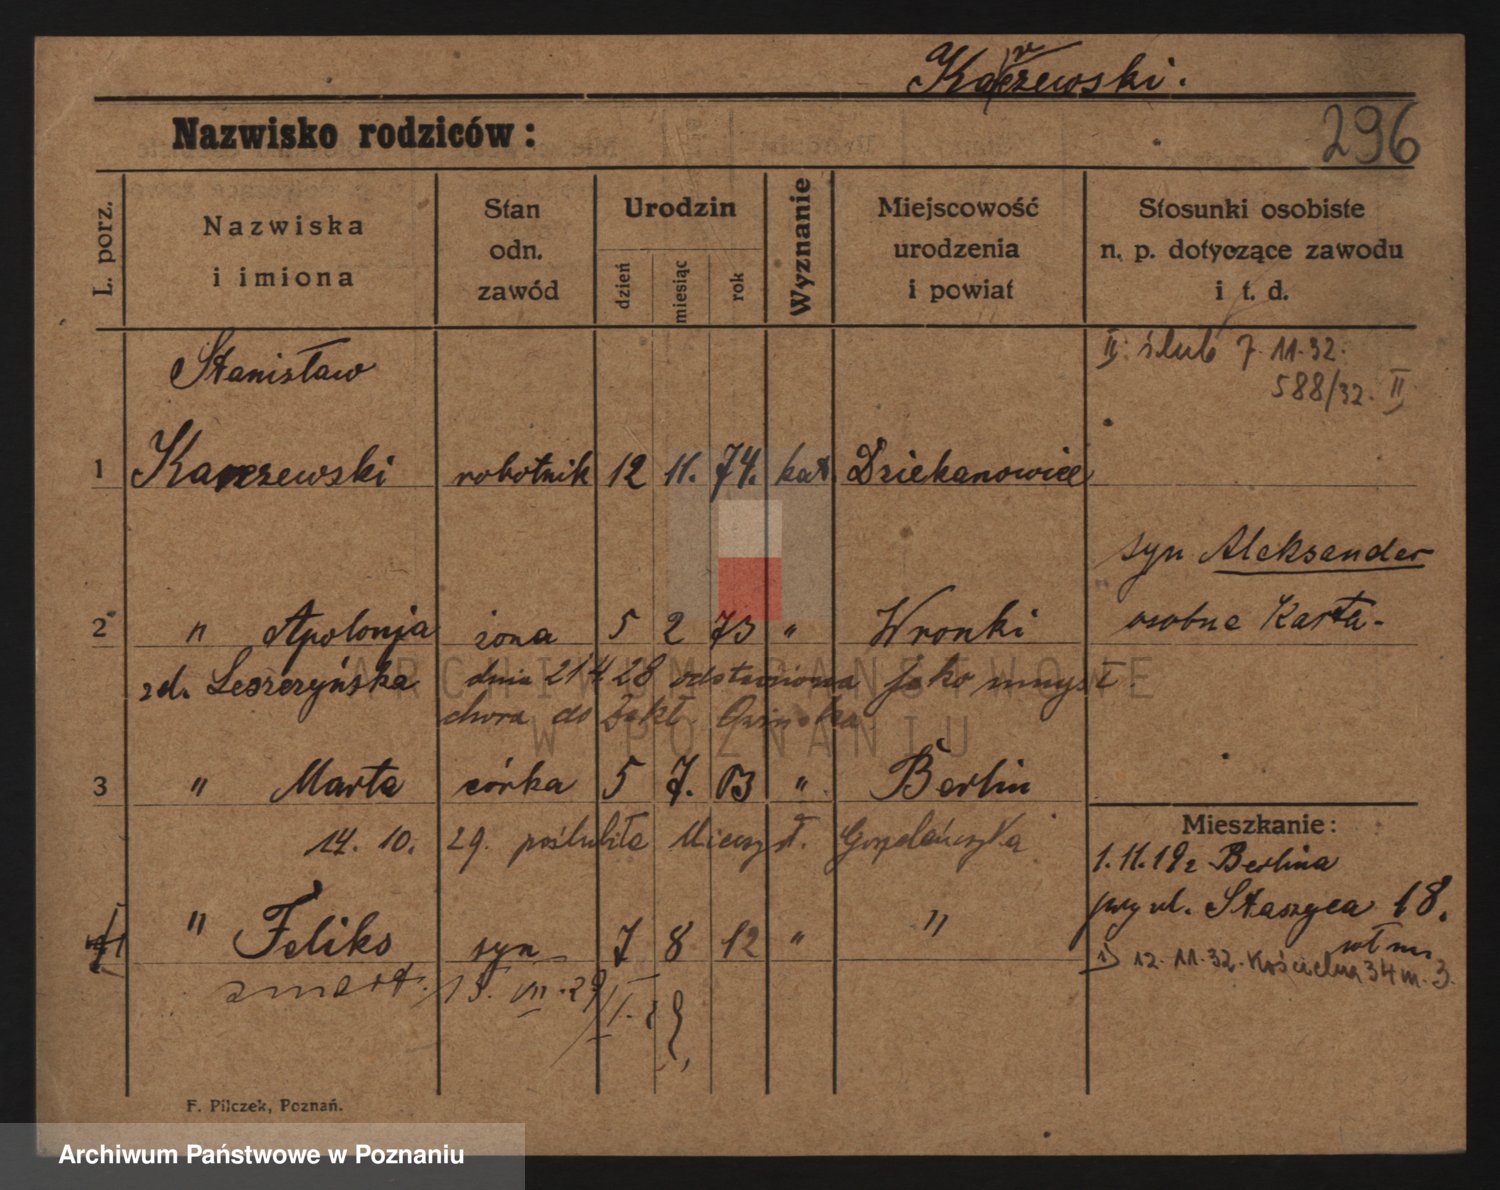 Karczewski.
Nazwisko rodziców:
296
L. porz.
Nazwiska
i imiona
Stan
odn.
zawód
Urodzin
dzień
miesiąc
rok
Wyznanie
Miejscowość
urodzenia
i powiat
Stosunki osobiste
n. p. dotyczące zawodu
i t. d.
II. ślub 7.11.32.
588/32. II
Stanisław
1 Karczewski robotnik 12 11. 74. kat. Dziekanowice
syn Aleksander
osobna Karta.
2 " Apolonja żona 5 2 73 " Wronki
zd. Leszczyńska dnia 21/4 28 odstawiona jako umysł.
chora do Zakł. Owińska
3 " Marta córka 5 7. 03 " Berlin
14. 10. 29. poślubiła Mieczysł.
Mieszkanie:
1.11.19 z Berlina
przy ul. Staszyca 18.
1) 12.11.32. Kościelna 34 m. 3.
" Feliks syn 7 8 12 " "
zmarł. 15. VII. 29
F. Pilczek, Poznań.
ARCHIWUM PAŃSTWOWE
W POZNANIU
Archiwum Państwowe w Poznaniu